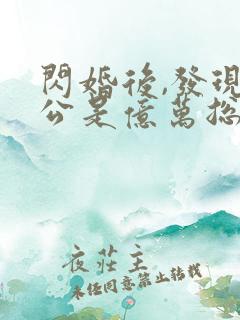 閃婚後,發現
公是億萬總
夜莊主
未經同意禁止轉載